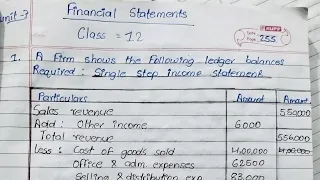 unit-7
Financial Statements
Class = 12
Page 255
1. A Firm shows the following ledger balances
Required: Single step income statement
Particulars Amount Amount
Sales revenue 550000
Add: Other income 6000
Total revenue 556000
Less: Cost of goods sold 4,00,000
Office & adm. expenses 62500
Selling & distribution exp. 83,000